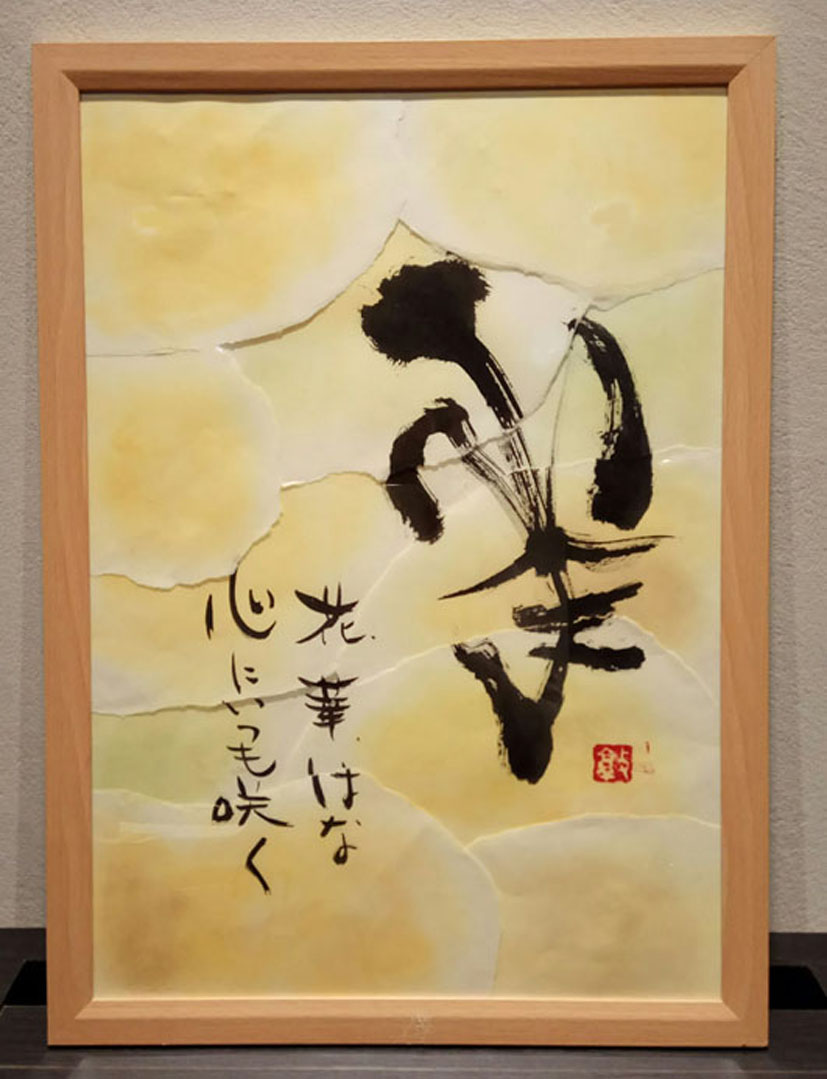 花、華、はな
心にいつも咲く